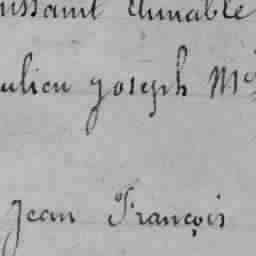 ussaint Aimable
ulien Joseph M
Jean François